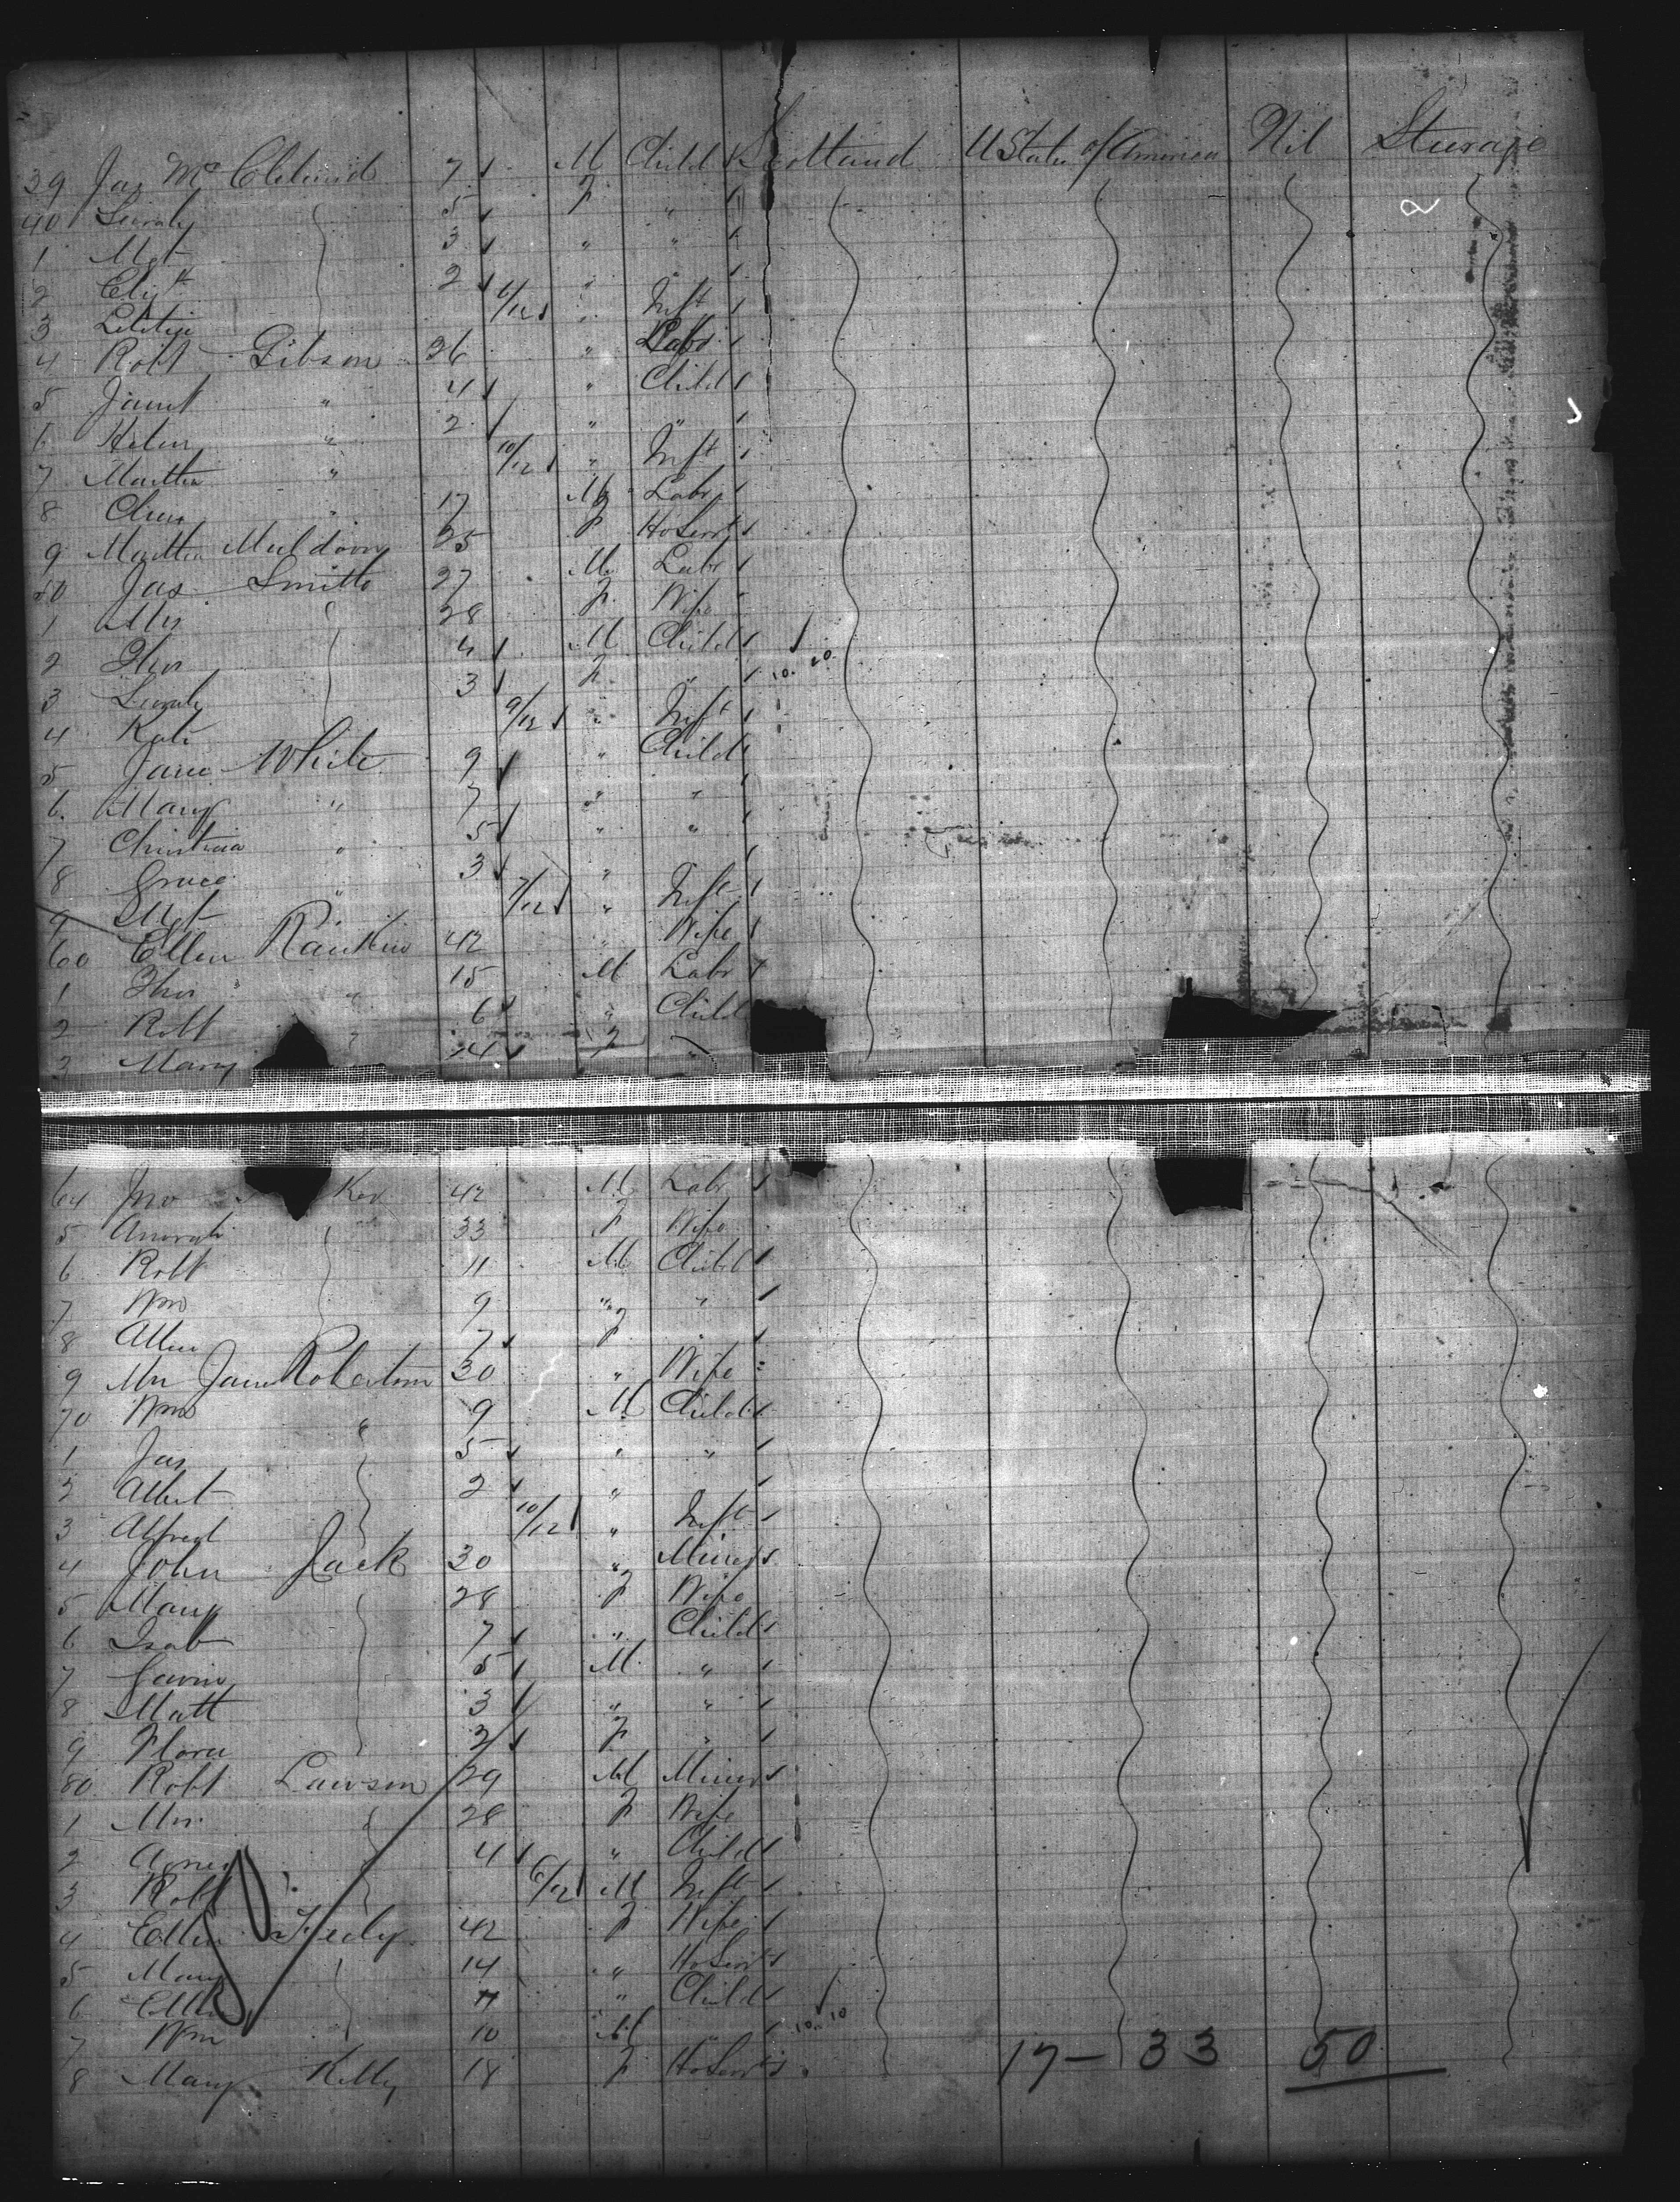 39 Jas McClelland 7 M Child Scotland U States of America Nil Steerage
40 Sarah 5 F "
1 Mgt 3 " "
2 Elizth 2 " "
3 Letitia 6/12 " Inft
4 Robt Gibson 36 " Labr
5 Janet " 4 " Child
6 Helen " 2 " "
7 Martha " 10/12 " Inft
8 Chas " 17 M Labr
9 Martha Muldoon 25 F HoServt
50 Jas Smith 27 M Labr
1 Mrs 28 F Wife
2 Thos 4 M Child
3 Sarah 3 F "
4 Kate 9/12 " Inft
5 Jane White 9 " Child
6 Mary " 7 " "
7 Christina " 5 " "
8 Grace " 3 "
9 Mgt " 7/12 " Inft
60 Ellen Rankin 42 " Wife
1 Thos " 15 M Labr
2 Robt " 6 " Child
3 Mary 4 F "
64 Jno 42 M Labr
5 33 F Wife
6 Robt 11 M Child
7 Wm 9 " "
8 Allen 7 F "
9 Mrs Jane Robertson 30 " Wife
70 Wm " 9 M Child
1 Jas 5 " "
2 Albert 2 "
3 Alfred 10/12 " Inft
4 John Jack 30 " Miner
5 Mary 28 F Wife
6 Isab 7 " Child
7 Gavin 5 M "
8 Matt 3 " "
9 Flora 2 F "
80 Robt Lawson 29 M Miner
1 Mrs 28 F Wife
2 Agnes 4 " Child
3 Robt 6/12 M Inft
4 Ellen Feely 42 F Wife
5 Mary 14 " HoServt
6 Ellen 11 " Child
7 Wm 10 M "
8 Mary Kelly 18 F HoServt
17 — 33 50